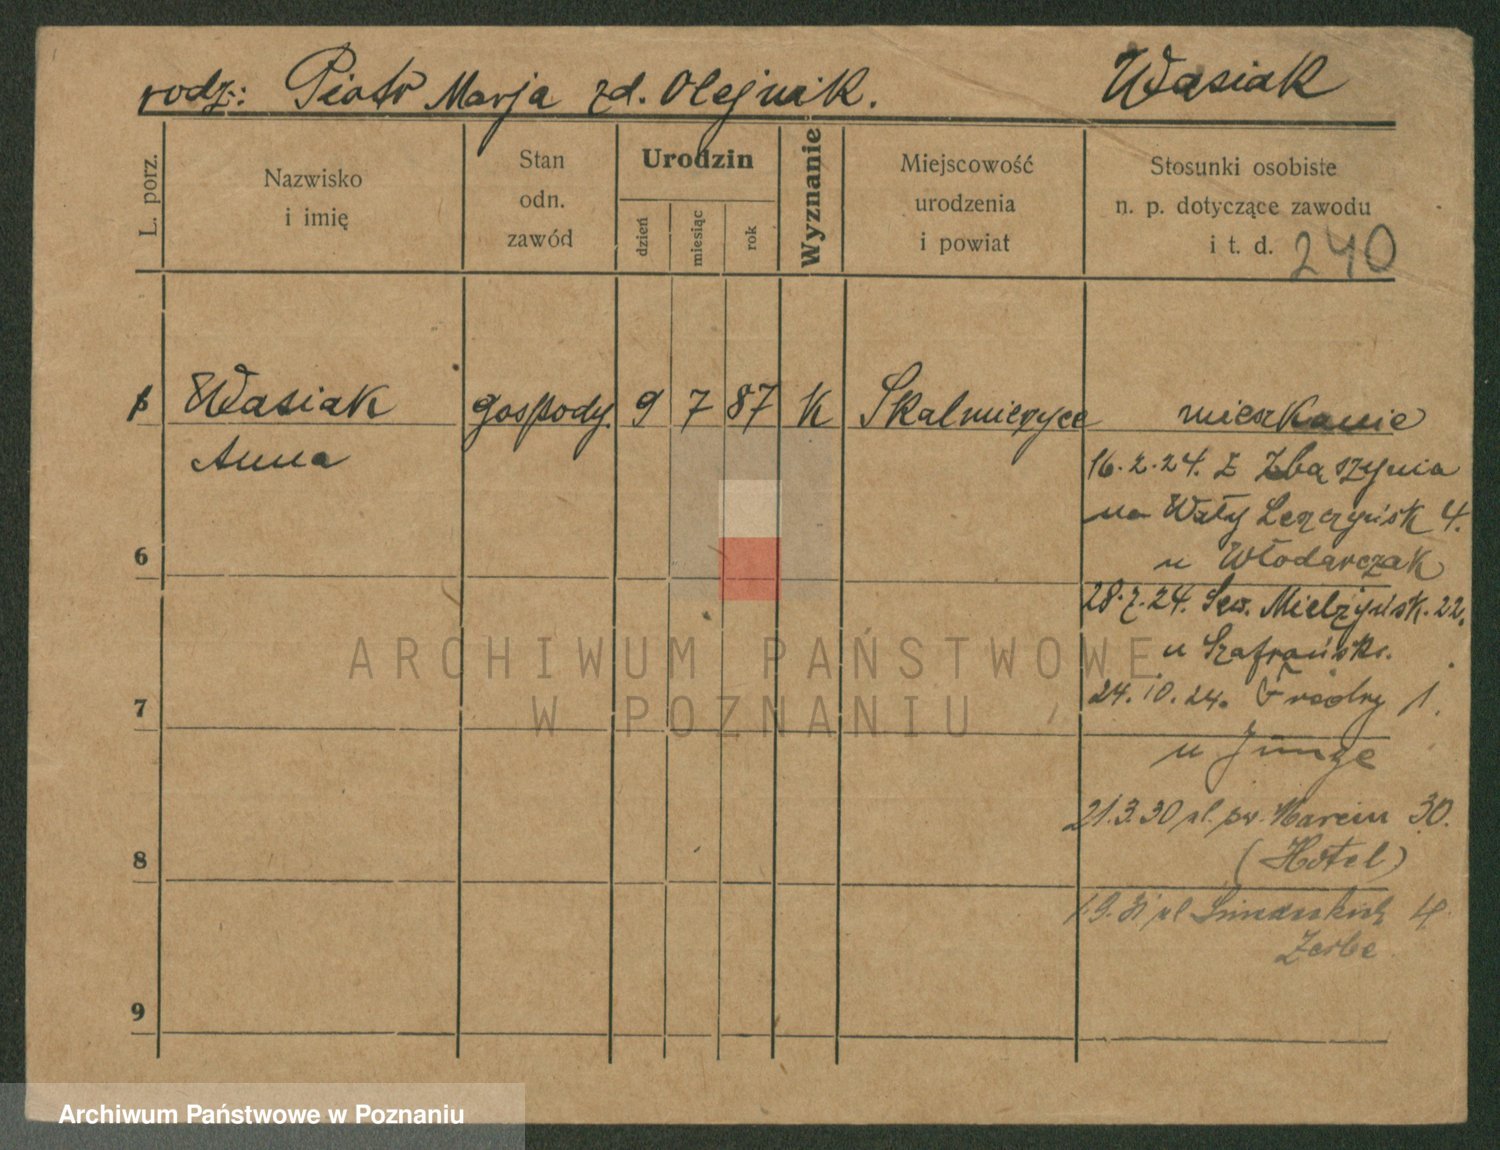 rodz: Piotr Marja zd. Olejnik. Wasiak
L. porz.
Nazwisko
i imię
Stan
odn.
zawód
Urodzin
dzień
miesiąc
rok
Wyznanie
Miejscowość
urodzenia
i powiat
Stosunki osobiste
n. p. dotyczące zawodu
i t. d. 240
Wasiak gospody. 9 7 87 K Skalmierzyce mieszkanie
Anna
16.2.24. z Zbąszynia
na Wały Leszczyńsk 4.
u Włodarczak
6
28.7.24. Sew. Mielżyńsk. 22.
u Szafrańsk.
24.10.24. Grobry 1.
7
u Junge
21.3.30 ul. św. Marcin 30.
(Hotel)
8
1.9.31 ul 4
Zerbe
9
ARCHIWUM PAŃSTWOWE
W POZNANIU
Archiwum Państwowe w Poznaniu